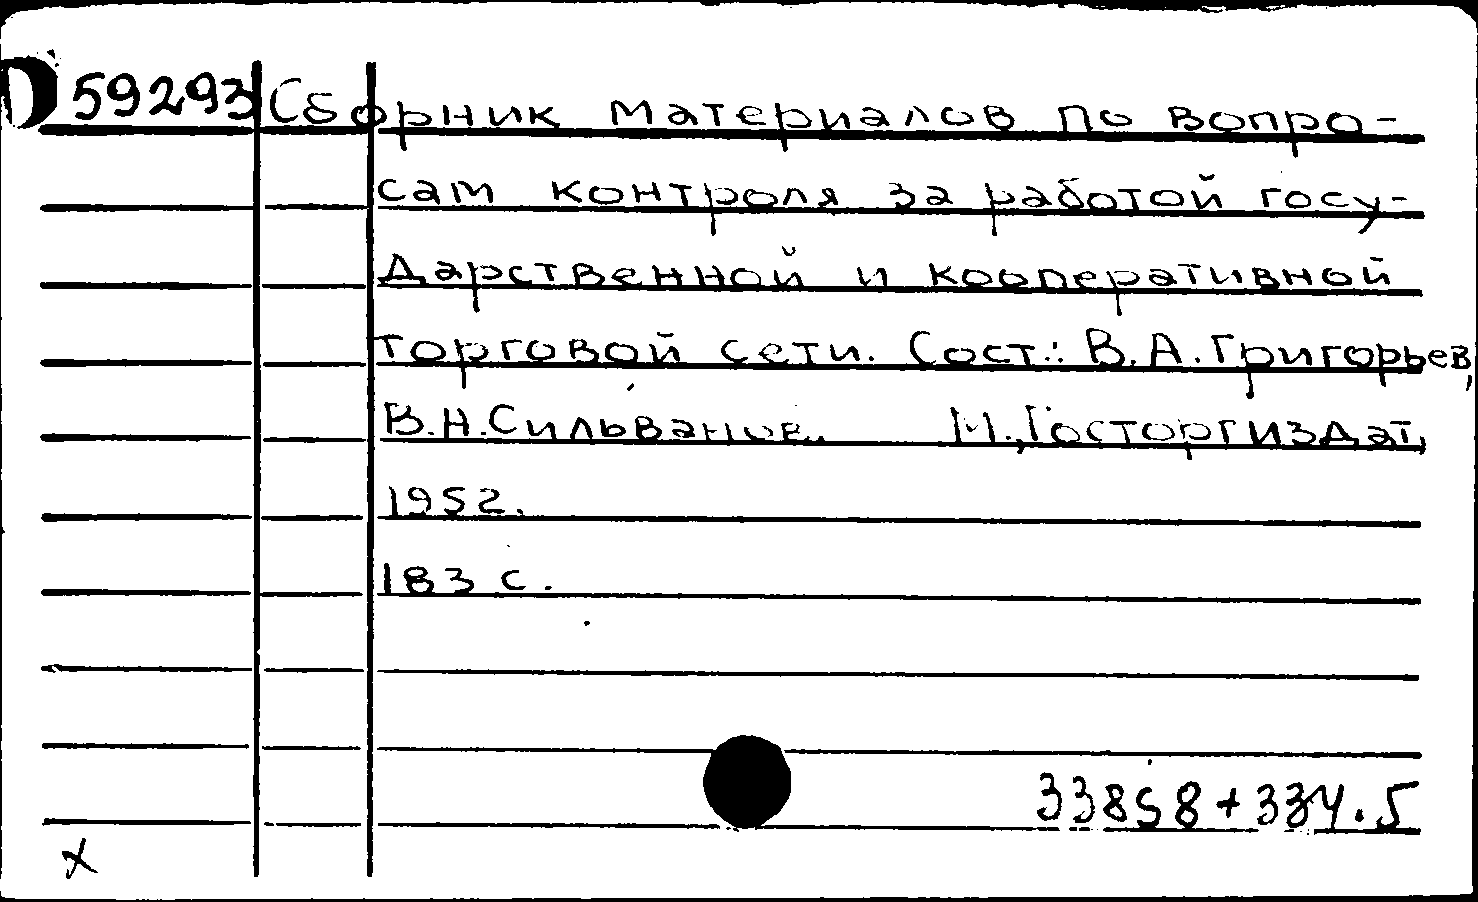 59293 Сборник материалов по вопро-
сам контроля за работой госу-
дарственной и кооперативной
торговой сети. Сост.: В.А.Григорьев,
В.Н.Сильванов. М., Госторгиздат,
1952.
183 с.
33858+334.5
x